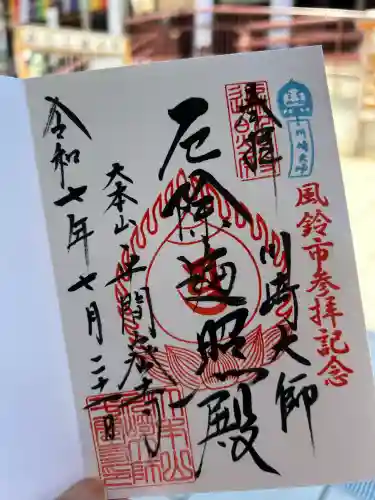 奉拝
川崎大師
風鈴市参拝記念
川崎大師
厄除遍照殿
大本山
平間寺
令和七年七月二十一日